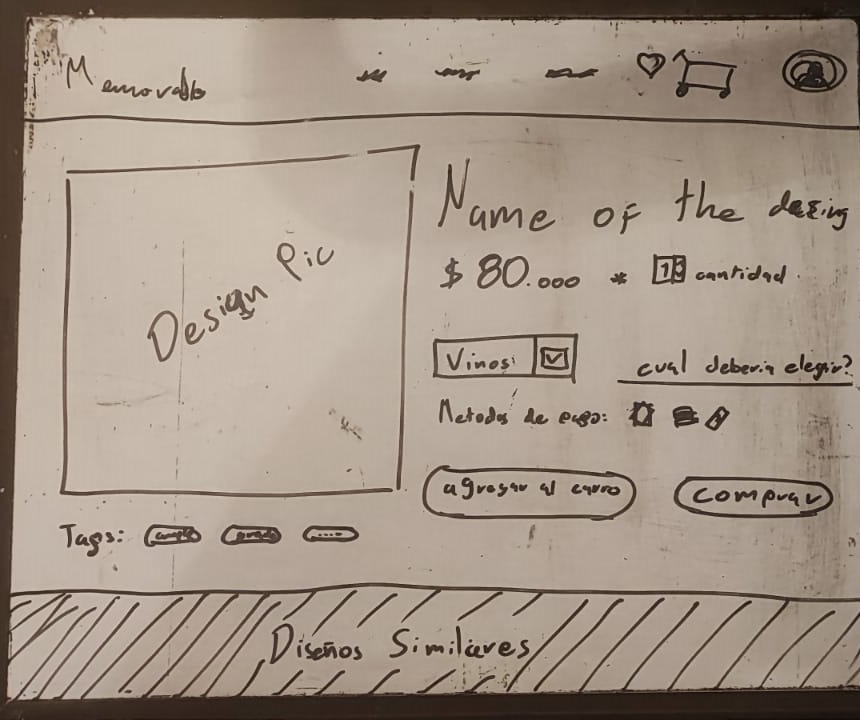 Memorable
Name of the desing
Design Pic
$ 80.000 * cantidad
Vinos
cual deberia elegir?
Metodos de pago:
agregar al carro
comprar
Tags:
Diseños Similares